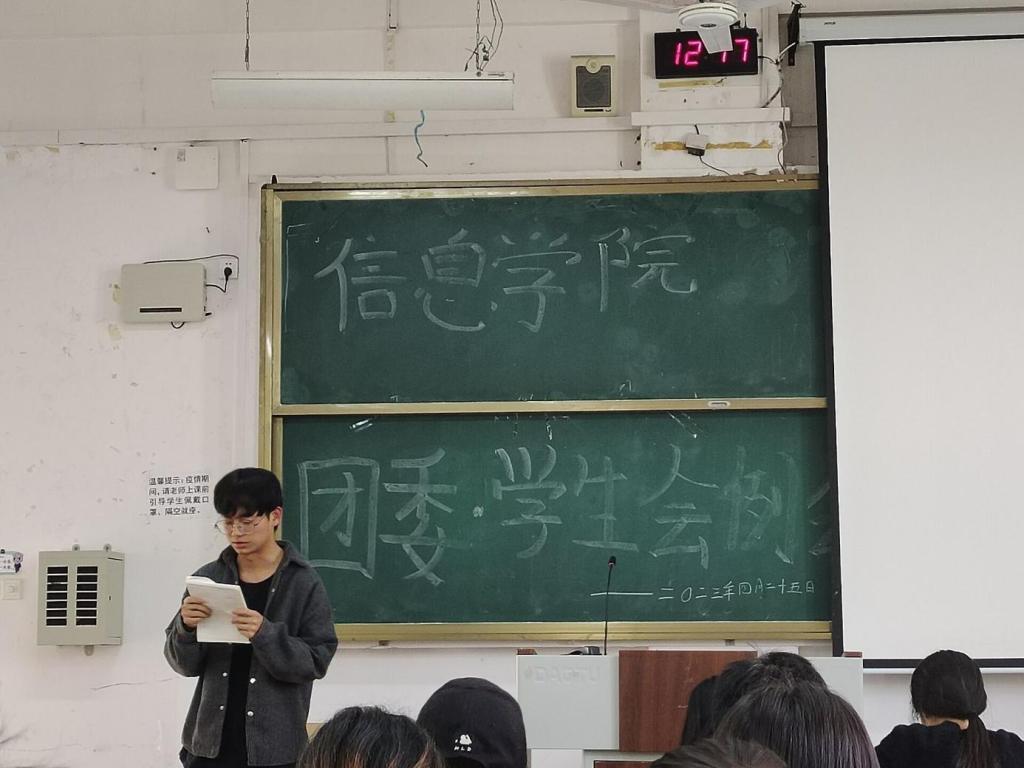 12 17
信息学院
团委·学生会例会
——二〇二三年四月二十五日
温馨提示:疫情期
间,请老师上课前
引导学生佩戴口
罩、隔空就座。
DAOTU
MLB